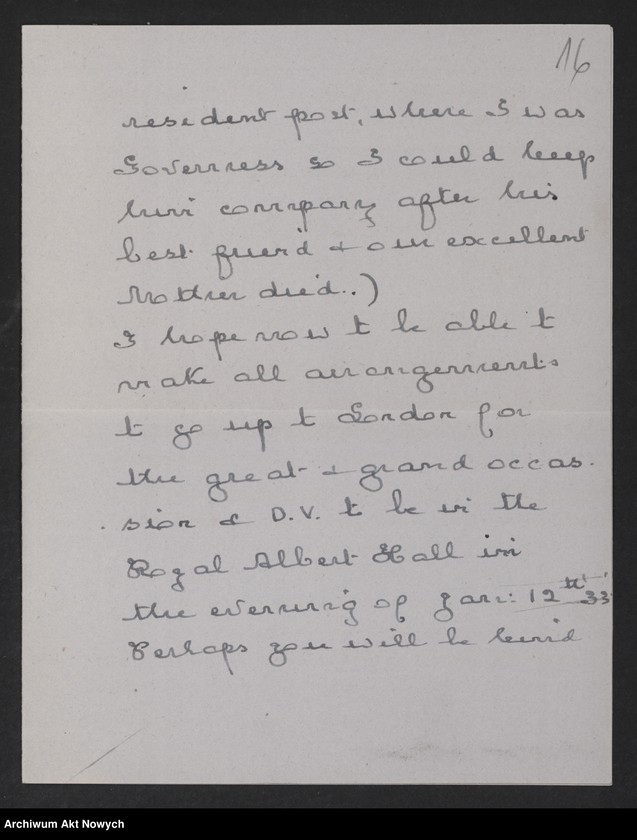 16
resident post, where I was
Governess so I could keep
him company after his
best friend & our excellent
Mother died..)
I hope now to be able to
make all arrangements
to go up to London for
the great & grand occas-
sion & D.V. to be in the
Royal Albert Hall in
the evening of Jan: 12th 33
Perhaps you will be kind
Archiwum Akt Nowych